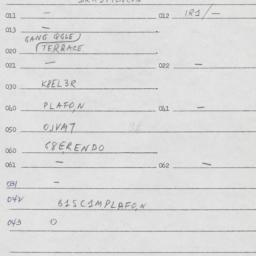 011 — 012 1R1/—
013 —
GANG QGLE)
020 (TERRACE
021 — 022 —
030 K8EL3R
040 PLAFO,N 041 —
050 OJVAT
060 G8E,RENDO
061 — 062 —
031 —
04V 61SC1MPLAFO,N
043 O